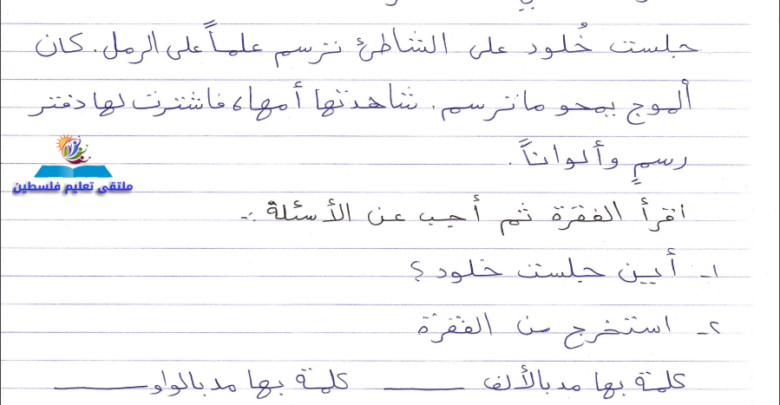 جلست خُلود على الشاطئ ترسم علماً على الرمل. كان
الموج يمحو ما ترسم. شاهدتها أمها، فاشترت لها دفتر
رسمٍ وألواناً.
ملتقى تعليم فلسطين
اقرأ الفقرة ثم أجب عن الأسئلة :-
١- أين جلست خلود ؟
٢- استخرج من الفقرة
كلمة بها مد بالألف ـــــــــ كلمة بها مد بالواو ـــــــــ